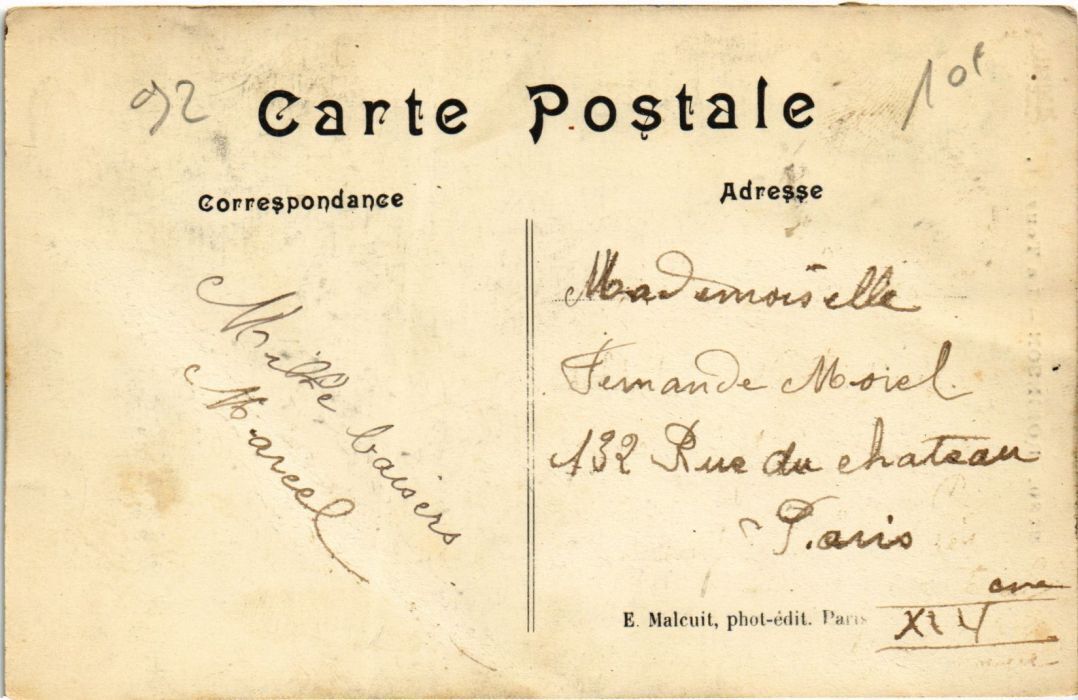 92
10f
Carte Postale
Correspondance
Adresse
Mille baisers
Marcel
Mademoiselle
Fernande Morel
132 Rue du chateau
Paris
XIV eme
E. Malcuit, phot-édit. Paris